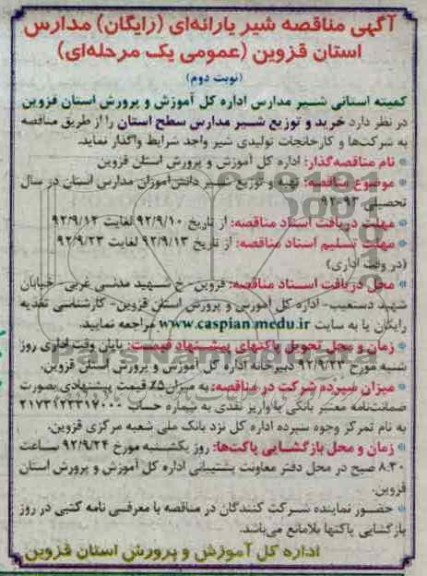 آگهی مناقصه شیر یارانه‌ای (رایگان) مدارس
استان قزوین (عمومی یک مرحله‌ای)
(نوبت دوم)
کمیته استانی شیر مدارس اداره کل آموزش و پرورش استان قزوین
در نظر دارد خرید و توزیع شیر مدارس سطح استان را از طریق مناقصه
به شرکت‌ها و کارخانجات تولیدی شیر واجد شرایط واگذار نماید.
نام مناقصه‌گذار: اداره کل آموزش و پرورش استان قزوین
موضوع مناقصه: تهیه و توزیع شیر دانش‌آموزان مدارس استان در سال
تحصیلی ۹۳-۹۲
مهلت دریافت اسناد مناقصه: از تاریخ ۹۲/۹/۱۰ لغایت ۹۲/۹/۱۲
مهلت تسلیم اسناد مناقصه: از تاریخ ۹۲/۹/۱۳ لغایت ۹۲/۹/۲۳
(در وقت اداری)
محل دریافت اسناد مناقصه: قزوین- خ شهید مدنی غربی- خیابان
شهید دستغیب- اداره کل آموزش و پرورش استان قزوین- کارشناسی تغذیه
رایگان یا به سایت www.caspian.medu.ir مراجعه نمایید.
زمان و محل تحویل پاکتهای پیشنهاد قیمت: پایان وقت اداری روز
شنبه مورخ ۹۲/۹/۲۳ دبیرخانه اداره کل آموزش و پرورش استان قزوین.
میزان سپرده شرکت در مناقصه: به میزان ۵٪ قیمت پیشنهادی بصورت
ضمانت‌نامه معتبر بانکی یا واریز نقدی به شماره حساب
به نام تمرکز وجوه سپرده اداره کل نزد بانک ملی شعبه مرکزی قزوین.
زمان و محل بازگشایی پاکت‌ها: روز یکشنبه مورخ ۹۲/۹/۲۴ ساعت
۸:۳۰ صبح در محل دفتر معاونت پشتیبانی اداره کل آموزش و پرورش استان
قزوین.
حضور نماینده شرکت کنندگان در مناقصه با معرفی نامه کتبی در روز
بازگشایی پاکتها بلامانع می‌باشد.
اداره کل آموزش و پرورش استان قزوین